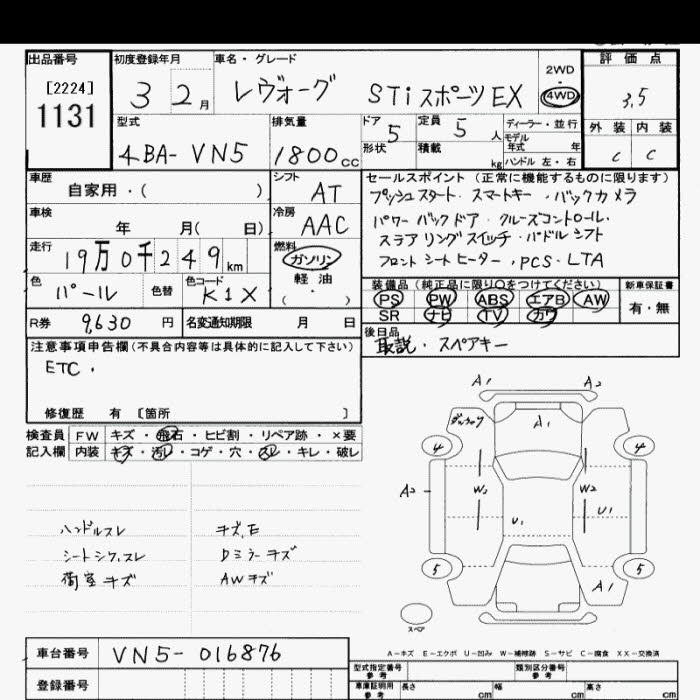 出品番号 初度登録年月 車名・グレード 2WD 評価点
[2224] 1131 3 2月 レヴォーグ STi スポーツ EX 4WD 3.5
型式 排気量 ドア 5 定員 5人 ディーラー・並行 外装 内装
4BA-VN5 1800cc 形状 積載 kg モデル年式 年 ハンドル 左・右 C C
車歴 自家用・( ) シフト AT セールスポイント (正常に機能するものに限ります)
プッシュスタート・スマートキー・バックカメラ
車検 年 月( 日) 冷房 AAC パワーバックドア・クルーズコントロール・
ステアリングスイッチ・パドルシフト
走行 19万0千249km 燃料 ガソリン 軽油 ・( ) フロントシートヒーター・PCS・LTA
色 パール 色替 色コード K1X 装備品(純正品に限り〇をつけてください) 新車保証書
PS PW ABS エアB AW 有・無
SR ナビ TV カワ
R券 9,630円 名変通知期限 月 日 後日品
取説・スペアキー
注意事項申告欄(不具合内容等は具体的に記入して下さい)
ETC・
修復歴 有 [箇所 ]
検査員 FW キズ・飛石・ヒビ割・リペア跡・×要
記入欄 内装 キズ・汚レ・コゲ・穴・スレ・キレ・破レ
A1 A2
A1
4 4
A2 W2 W2
U1 U1
5 5
A1
スペア
ハンドルスレ キズ,E
シートシワ,スレ Dミラーキズ
荷室キズ AWキズ
A-キズ E-エクボ U-凹み W-補修跡 S-サビ C-腐食 XX-交換済
車台番号 VN5-016876
型式指定番号 参考 類別区分番号 参考
登録番号 車庫証明用 参考 長さ cm 幅 cm 高さ cm